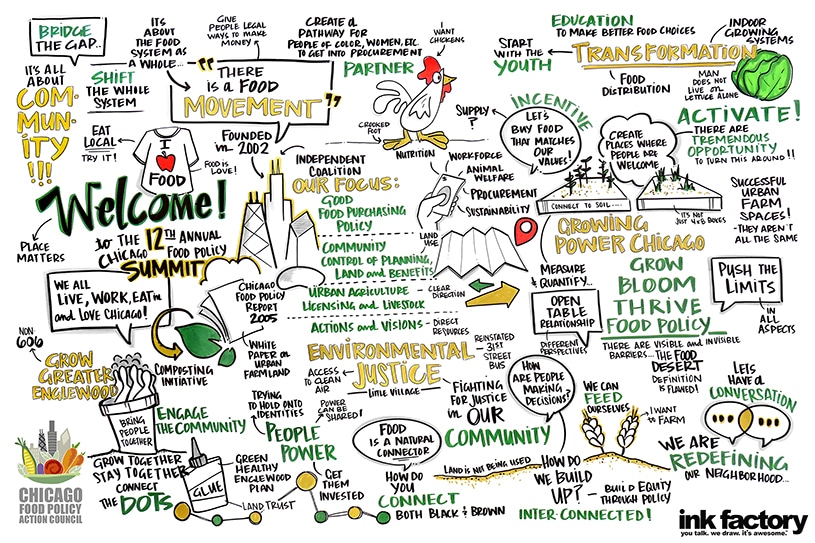 BRIDGE
THE GAP..
IT'S
ABOUT
THE FOOD
SYSTEM AS
A WHOLE...
GIVE
PEOPLE LEGAL
WAYS TO MAKE
MONEY
CREATE A
PATHWAY FOR
PEOPLE OF COLOR, WOMEN, ETC.
TO GET INTO PROCUREMENT
PARTNER
I WANT
CHICKENS
EDUCATION
TO MAKE BETTER FOOD CHOICES
INDOOR
GROWING
SYSTEMS
START
WITH THE
YOUTH
TRANSFORMATION
FOOD
DISTRIBUTION
MAN DOES
NOT LIVE
ON LETTUCE ALONE
IT'S ALL
ABOUT
COM-
MUN-
ITY
!!!
SHIFT
THE WHOLE
SYSTEM
"THERE
IS A FOOD
MOVEMENT"
FOUNDED
IN 2002
EAT
LOCAL
TRY IT!
I
FOOD
FOOD IS
LOVE!
CROOKED
FOOT
SUPPLY
?
INCENTIVE
LET'S
BUY FOOD
THAT MATCHES
OUR
VALUES!
CREATE
PLACES WHERE
PEOPLE ARE
WELCOME
ACTIVATE!
THERE ARE
TREMENDOUS
OPPORTUNITY
TO TURN THIS AROUND!!
INDEPENDENT
COALITION
OUR FOCUS:
GOOD
FOOD PURCHASING
POLICY
NUTRITION
WORKFORCE
ANIMAL
WELFARE
PROCUREMENT
SUSTAINABILITY
CONNECT TO SOIL....
IT'S NOT
JUST 4x8 BOXES
SUCCESSFUL
URBAN
FARM
SPACES!
- THEY AREN'T
ALL THE SAME
Welcome!
to THE 12TH ANNUAL
CHICAGO FOOD POLICY
SUMMIT
PLACE
MATTERS
COMMUNITY
CONTROL OF PLANNING,
LAND AND BENEFITS
LAND
USE
GROWING
POWER CHICAGO
MEASURE
& QUANTIFY...
GROW
BLOOM
THRIVE
FOOD POLICY
PUSH THE
LIMITS
IN ALL
ASPECTS
WE ALL
LIVE, WORK, EAT in
AND LOVE CHICAGO!
CHICAGO
FOOD POLICY
REPORT
2005
URBAN AGRICULTURE
LICENSING AND LIVESTOCK
CLEAR
DIRECTION
OPEN
TABLE
RELATIONSHIP
DIFFERENT
PERSPECTIVES
ACTIONS AND VISIONS -
DIRECT
RESOURCES
WHITE
PAPER ON
URBAN
FARMLAND
ENVIRONMENTAL
JUSTICE
LITTLE VILLAGE
ACCESS
TO CLEAN
AIR
REINSTATED
31ST
STREET
BUS
THERE ARE VISIBLE AND INVISIBLE
BARRIERS... THE FOOD
DESERT
DEFINITION
IS FLAWED!
NON
GROW
GREATER
ENGLEWOOD
COMPOSTING
INTIATIVE
BRING
PEOPLE
TOGETHER
ENGAGE
THE COMMUNITY
TRYING
TO HOLD ONTO
IDENTITIES
POWER
CAN BE
SHARED!
PEOPLE
POWER
FIGHTING
FOR JUSTICE
in OUR
COMMUNITY
HOW
ARE PEOPLE
MAKING
DECISIONS?
WE CAN
FEED
OURSELVES
I WANT
TO FARM
LETS
HAVE A
CONVERSATION
WE ARE
REDEFINING
OUR NEIGHBORHOOD...
FOOD
IS A NATURAL
CONNECTOR
LAND IS NOT BEING USED
GROW TOGETHER
STAY TOGETHER
CONNECT
THE DOTS
GLUE
GREEN
HEALTHY
ENGLEWOOD
PLAN
LAND TRUST
GET
THEM
INVESTED
HOW DO
YOU
CONNECT
BOTH BLACK & BROWN
HOW DO
WE BUILD
UP?
- BUILD EQUITY
THROUGH POLICY
INTER-CONNECTED!
CHICAGO
FOOD POLICY
ACTION COUNCIL
ink factory
you talk. we draw. it's awesome.